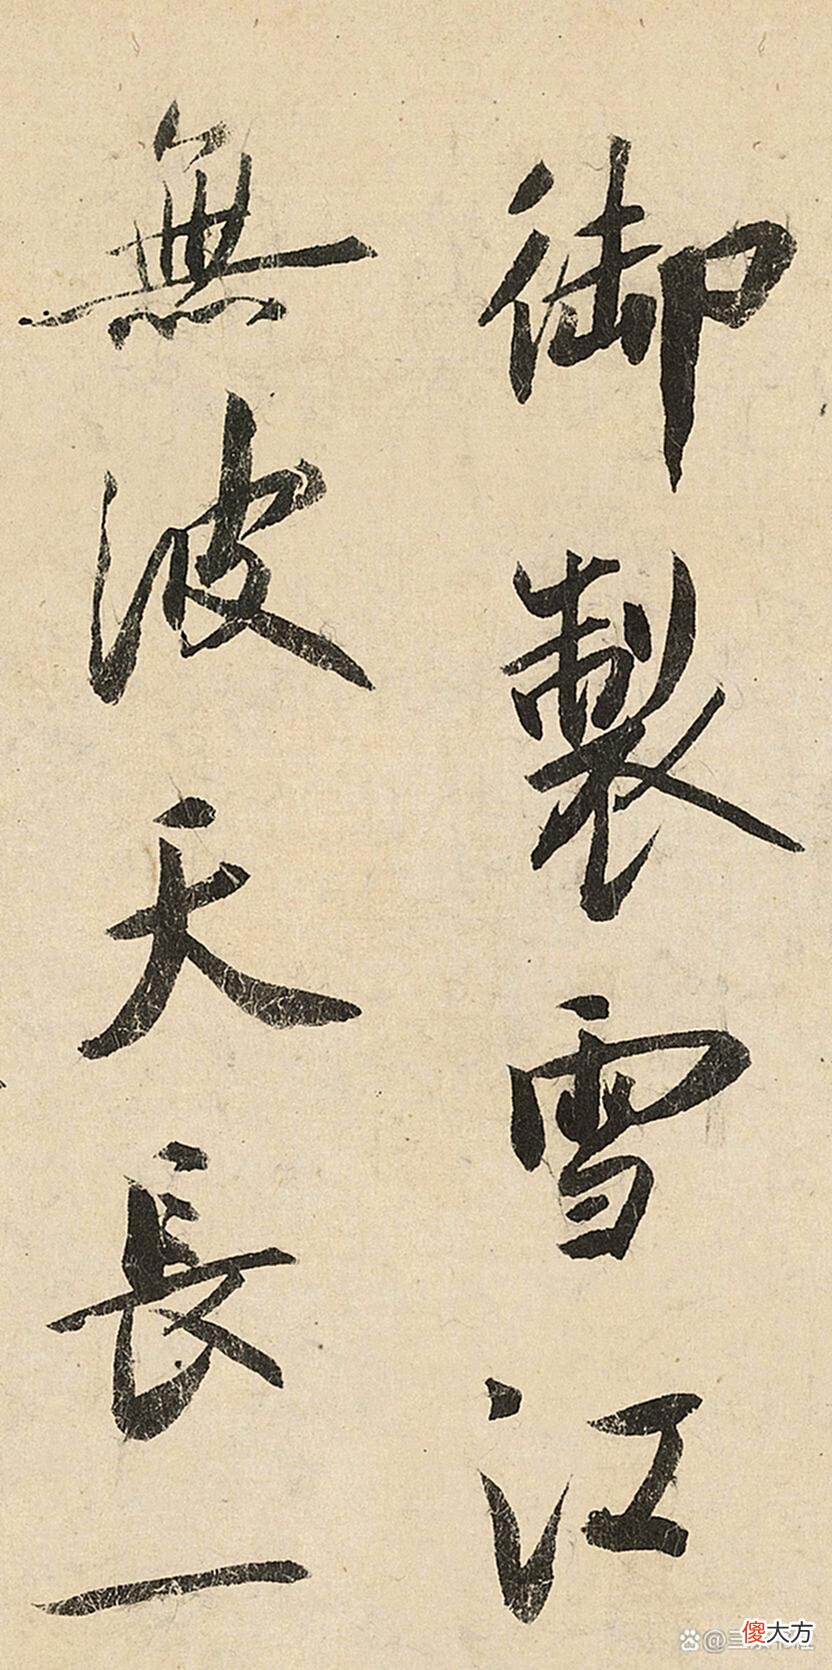 御製雪江
無波天長一
傻大方